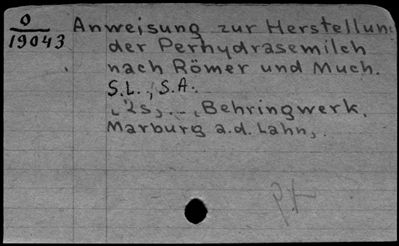 O
19043
Anweisung zur Herstellung
der Perhydrasemilch
nach Römer und Much.
S.L., S.A.
2s, ... Behringwerk,
Marburg a.d. Lahn,